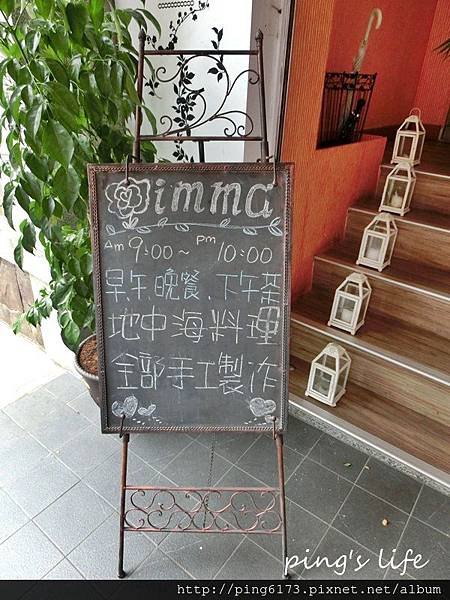 imma
Am 9:00~ Pm 10:00
早.午.晚餐、下午茶
地中海料理
全部手工製作
ping's life
http://ping6173.pixnet.net/album